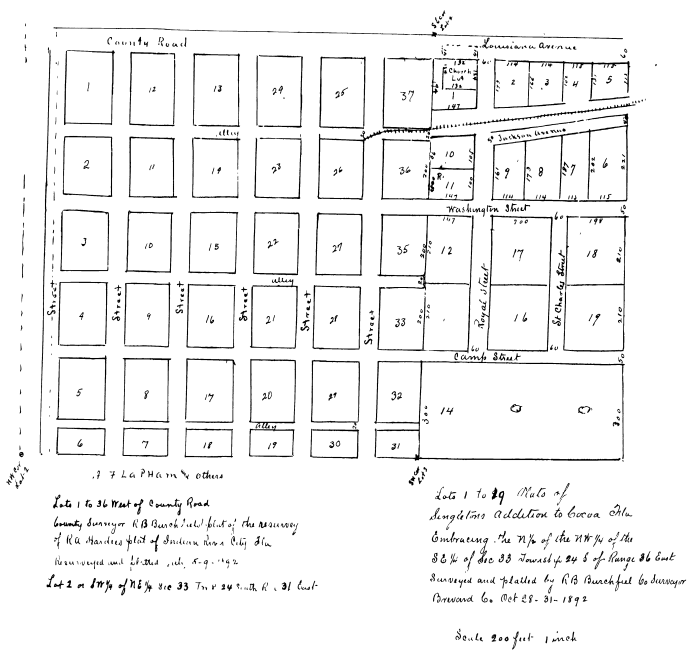 County Road
Louisiana Avenue
1 12 13 24 25 37
Church
Lot
1 2 3 4 5
147
alley
Jackson Avenue
2 11 14 23 26 36
10
11
9 8 7 6
147 114 114 115
Washington Street
147 200 60 198
3 10 15 22 27 35
12 17 18
alley
Street Street Street Street Street Street
Royal Street
St Charles Street
4 9 16 21 28 33
16 19
60 60
Camp Street
5 8 17 20 29 32
14
300 300
alley
6 7 18 19 30 31
J F LaPham & others
Lots 1 to 36 West of County Road
County Surveyor R B Burchfield plat of the reservey
of R A Hardees plat of Indian River City Fla
Resurveyed and platted 5-9-1892
Lot 2 or SW 1/4 of NE 1/4 Sec 33 24 South R 31 East
Lots 1 to 19 Plats of
Singletons Addition to Cocoa Fla
Embracing the N 1/2 of the NW 1/4 of the
SE 1/4 of Sec 33 Township 24 S of Range 36 East
Surveyed and platted by R B Burchfiel Co Surveyor
Brevard Co. Oct 28-31-1892
Scale 200 feet 1 inch